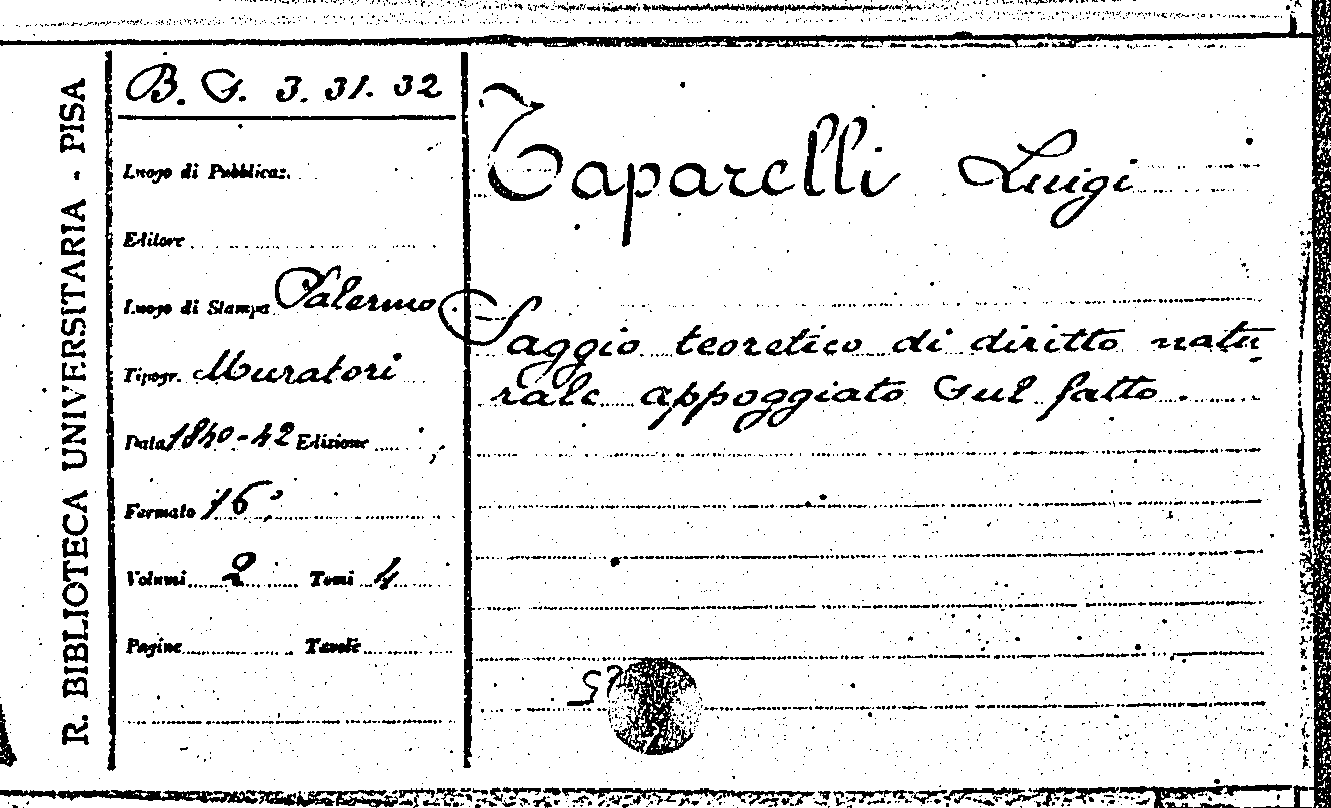 R. BIBLIOTECA UNIVERSITARIA - PISA
B. G. 3. 31. 32
Luogo di Pubblicaz.
Editore
Luogo di Stampa Palermo
Tipogr. Muratori
Data 1840-42 Edizione
Formato 16°
Volumi 2 Tomi 4
Pagine Tavole
Taparelli Luigi
Saggio teoretico di diritto natu-
rale appoggiato sul fatto.